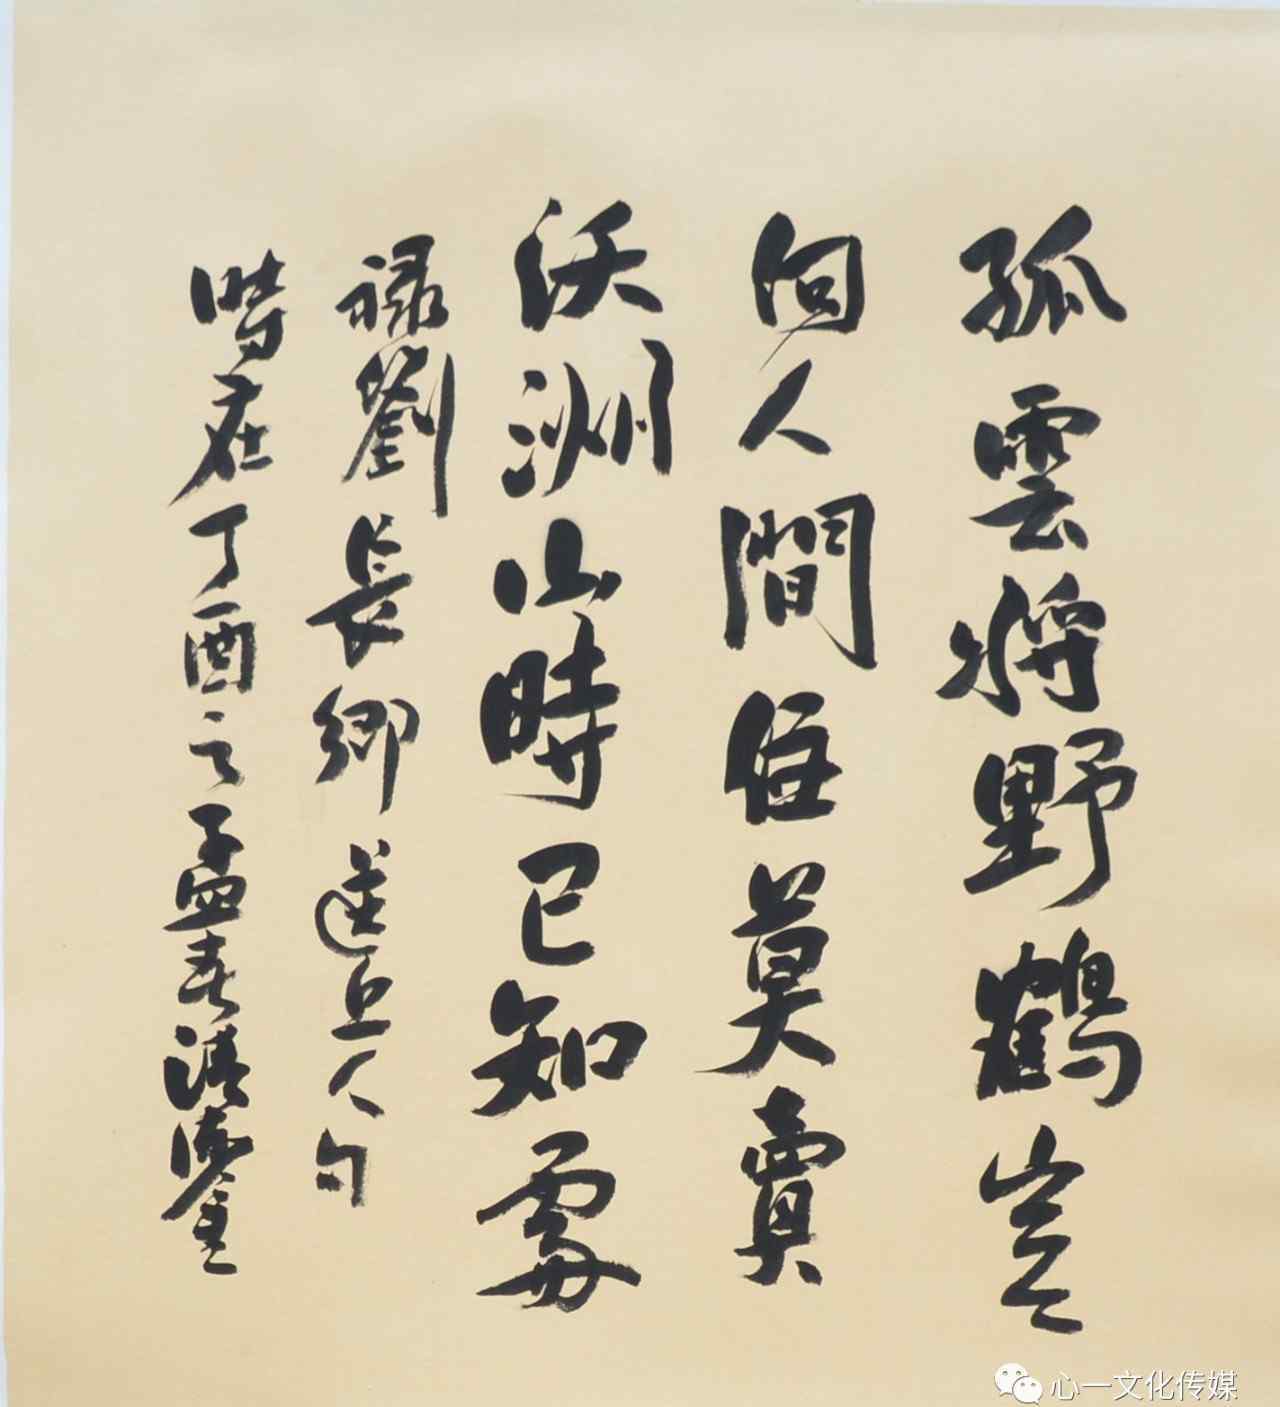 孤雲將野鶴豈
向人間住莫賣
沃洲山時已知處
禄劉長卿送上人句
時在丁酉之孟春
心一文化传媒